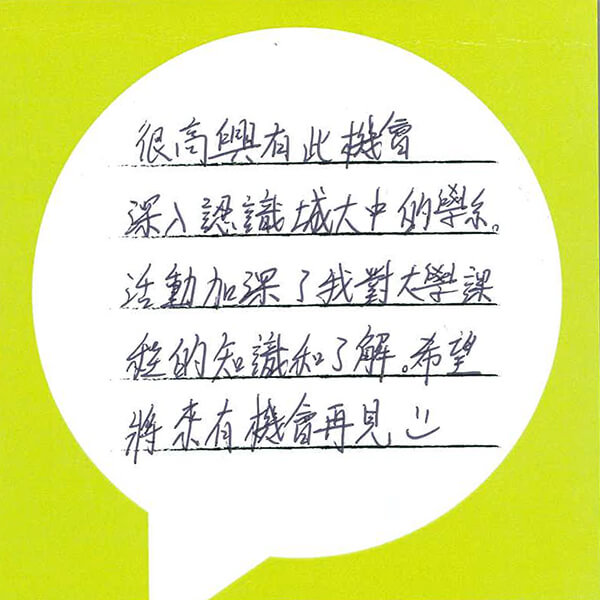 很高興有此機會
深入認識城大中的學系。
活動加深了我對大學課
程的知識和了解。希望
將來有機會再見 :)